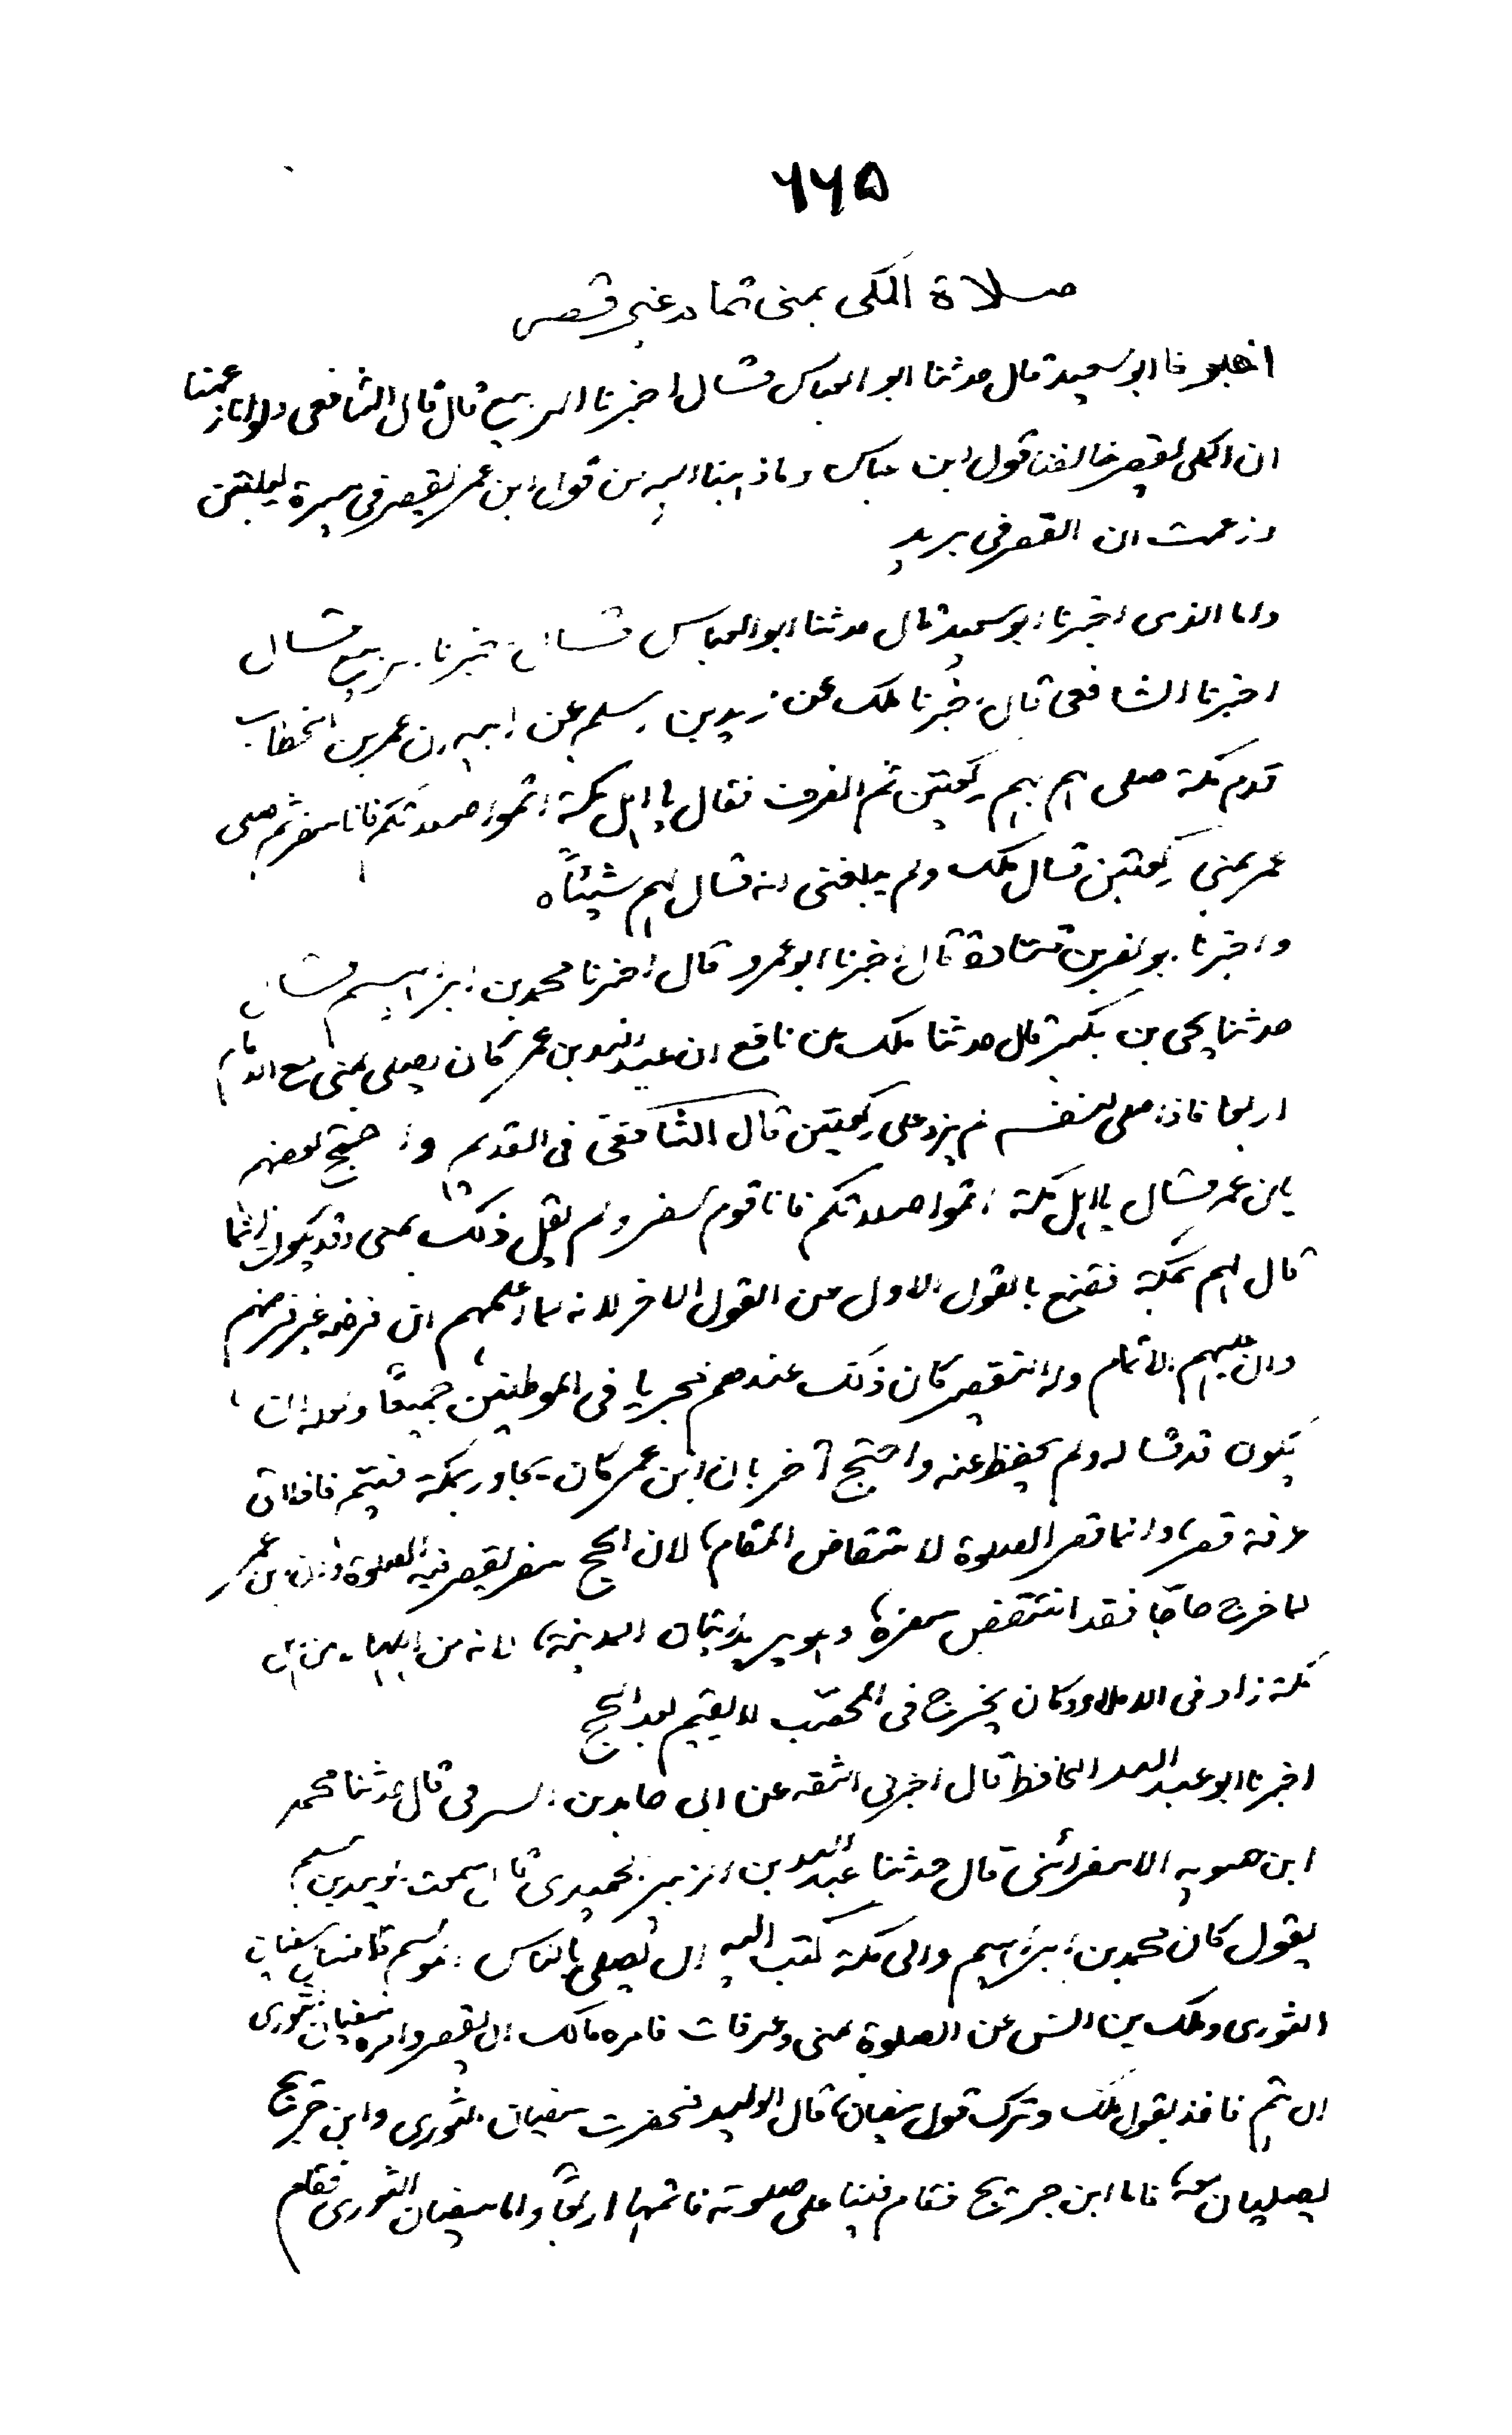 ٦٦٥
صلاة المكي بمنى تماما غير قصر
اخبرنا ابو سعيد قال حدثنا ابو العباس قال اخبرنا الربيع قال قال الشافعي ولو انا زعمنا
ان المكي يقصر خالفنا قول ابن عباس وما ذهبنا اليه من قول ابن عمر يقصر في مسيرة ليلتين
وزعمت ان القصر في بريد
واما الذي اخبرنا ابو سعيد قال حدثنا ابو العباس قال اخبرنا الربيع قال
اخبرنا الشافعي قال اخبرنا ملك عن زيد بن اسلم عن ابيه ان عمر بن الخطاب
قدم مكة صلى بهم ركعتين ثم انصرف فقال يا اهل مكة اتموا صلوتكم فانا سفر ثم صلى
عمر بمنى ركعتين قال ملك ولم يبلغني انه قال لهم شيئاً ه
واخبرنا ابو نصر بن قتادة قال اخبرنا ابو عمرو قال اخبرنا محمد بن ابراهيم قال
حدثنا يحيى بن بكير قال حدثنا ملك عن نافع ان عبد الله بن عمر كان يصلي بمنى مع الامام
اربعا فاذا صلى لنفسه لم يزد على ركعتين قال الشافعي في القديم واحتج بعضهم
بابن عمر قال يا اهل مكة اتموا صلوتكم فانا قوم سفر ولم يقل ذلك بمنى وقد يكون انما
قال لهم بمكة فقنع بالقول الاول من القول الاخر لانه لما اعلمهم ان فرضه غير فرضهم
وان عليهم الاتمام وله القصر كان ذلك عندهم مجزيا في الموطنين جميعًا ولعله ان
يكون قد قاله ولم يحفظ عنه واحتج آخر بان ابن عمر كان يجاور بمكة فيتم فاذا اتى
عرفة قصر، وانما قصر الصلوة لانتقاض المقام، لان الحج سفر يقصر فيه الصلوة وان ابن عمر
لما خرج حاجا فقد انتقض سفره، وهو يريد اتيان المدينة، لانه من اهلها من اهل
مكة زاد في الاملاء وكان يخرج في المحصّب لا يقيم بعد الحج
اخبرنا ابو عبد الله الحافظ قال اخبرني الثقة عن ابي حامد بن الشرقي قال حدثنا محمد
ابن حمويه الاسفرائني قال حدثنا عبد الله بن الزبير الحميدي قال سمعت الوليد بن مسلم
يقول كان محمد بن ابراهيم والي مكة كتب اليه ان يصلي بالناس الموسم قال فسال سفيان
الثوري وملك بن انس عن الصلوة بمنى وعرفات فامره مالك ان يقصر وامره سفيان الثوري
ان يتم فاخذ بقول ملك وترك قول سفيان، قال الوليد فحضرت سفيان الثوري وابن جريج
يصليان معه، فاما ابن جريج فقام فبنى على صلوته فاتمها اربعًا واما سفيان الثوري فقام